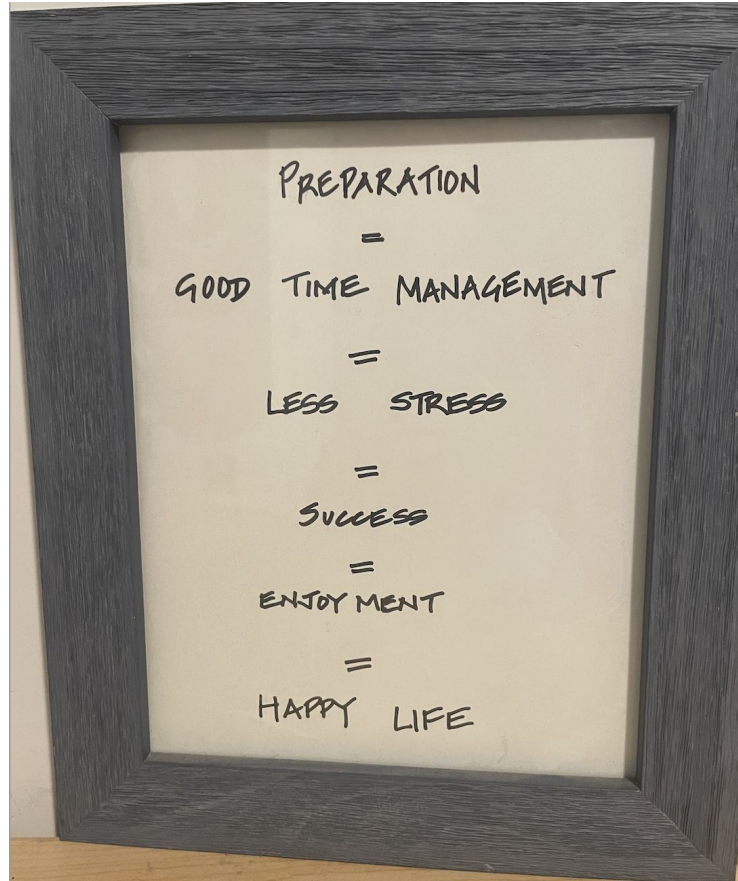 PREPARATION
=
GOOD TIME MANAGEMENT
=
LESS STRESS
=
SUCCESS
=
ENJOYMENT
=
HAPPY LIFE